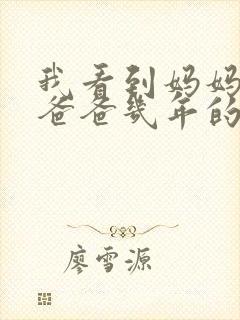 我看到妈妈
爸爸几年的
廖雪源